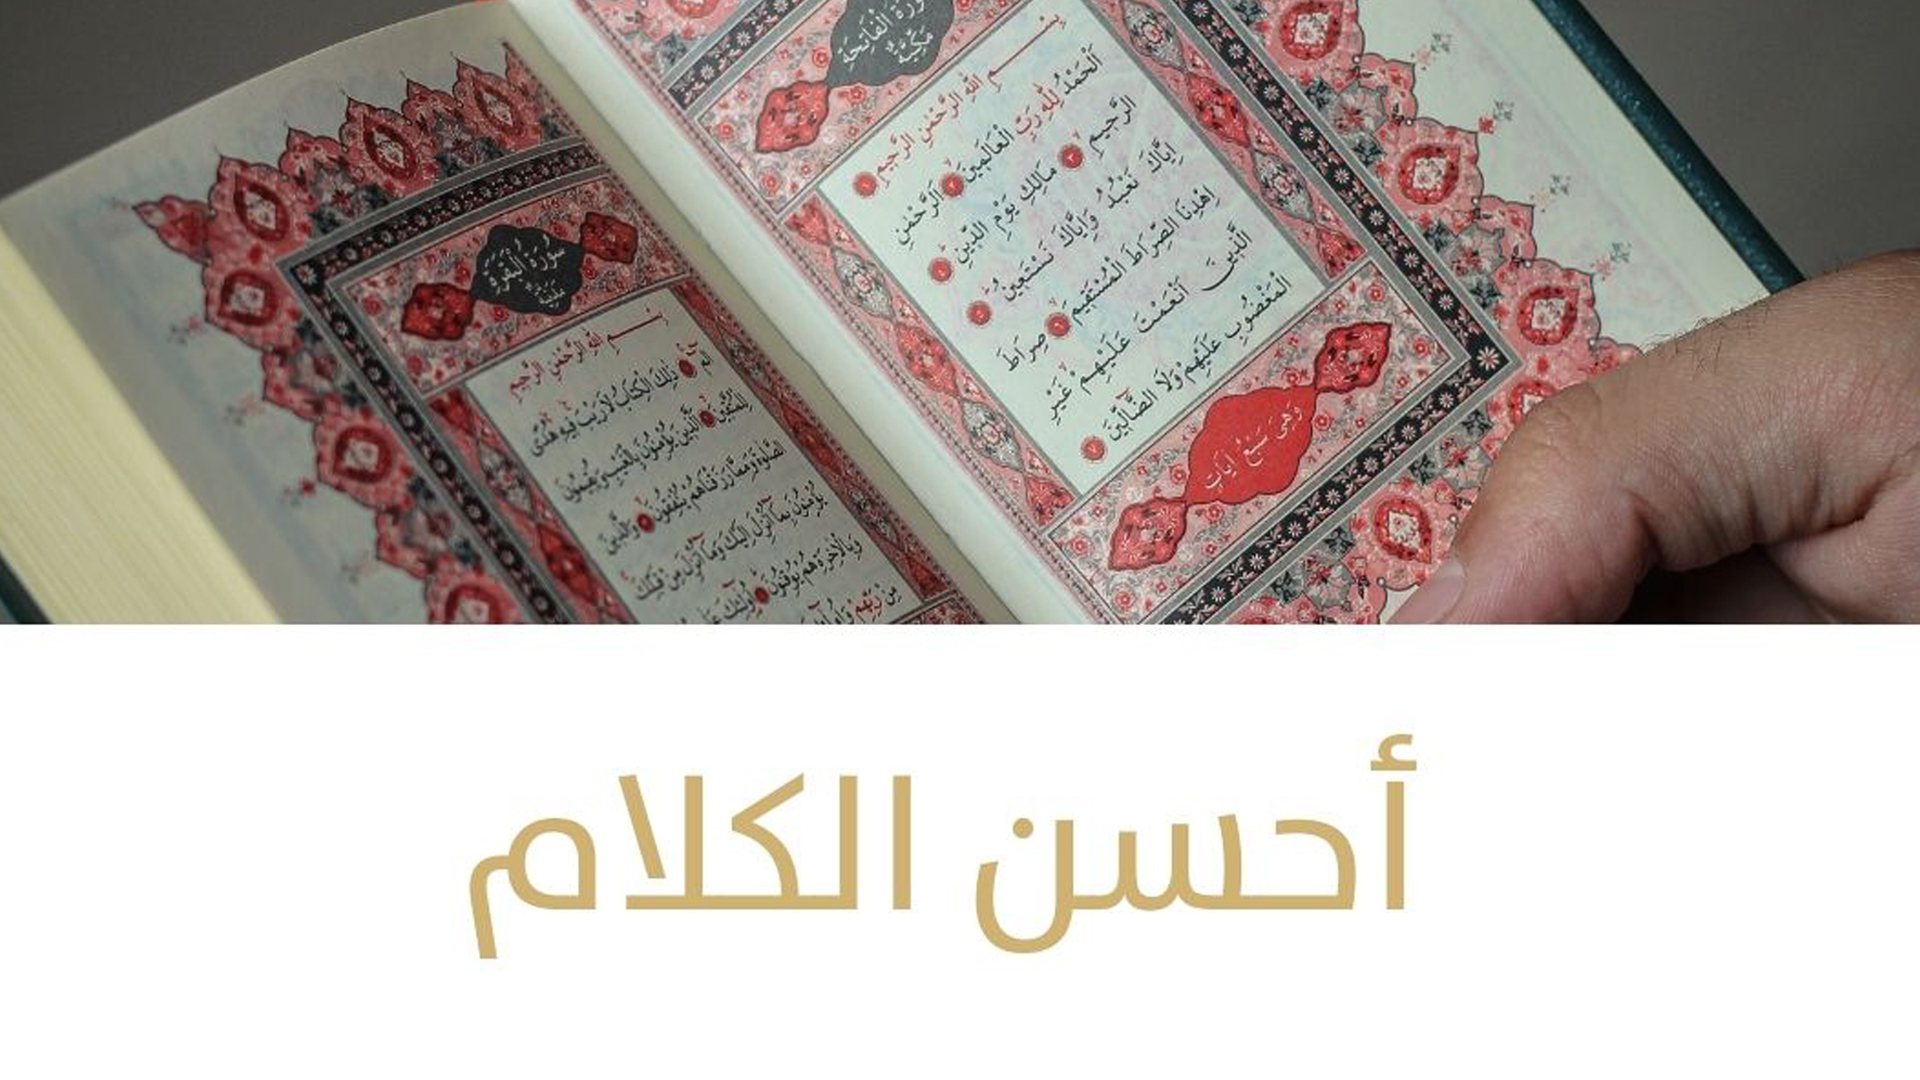 سُورَةُ الْفَاتِحَةِ
مَكِّيَّةٌ
بِسْمِ اللهِ الرَّحْمٰنِ الرَّحِيمِ ١
اَلْحَمْدُ لِلّٰهِ رَبِّ الْعَالَمِينَ ٢ اَلرَّحْمٰنِ
الرَّحِيمِ ٣ مَالِكِ يَوْمِ الدِّينِ ٤
اِيَّاكَ نَعْبُدُ وَاِيَّاكَ نَسْتَعِينُ ٥
اِهْدِنَا الصِّرَاطَ الْمُسْتَقِيمَ ٦ صِرَاطَ
الَّذِينَ اَنْعَمْتَ عَلَيْهِمْ غَيْرِ
الْمَغْضُوبِ عَلَيْهِمْ وَلَا الضَّالِّينَ ٧
وَهِىَ سَبْعُ اٰيَاتٍ
سُورَةُ الْبَقَرَةِ
مَدَنِيَّةٌ
بِسْمِ اللهِ الرَّحْمٰنِ الرَّحِيمِ
الٓمٓ ١ ذٰلِكَ الْكِتَابُ لَا رَيْبَ فِيهِ هُدًى
لِلْمُتَّقِينَ ٢ اَلَّذِينَ يُؤْمِنُونَ بِالْغَيْبِ وَيُقِيمُونَ
الصَّلٰوةَ وَمِمَّا رَزَقْنَاهُمْ يُنْفِقُونَ ٣ وَالَّذِينَ
يُؤْمِنُونَ بِمَا اُنْزِلَ اِلَيْكَ وَمَا اُنْزِلَ مِنْ قَبْلِكَ
وَبِالْاٰخِرَةِ هُمْ يُوقِنُونَ ٤ اُولٰئِكَ عَلٰى
مِنْ رَبِّهِمْ
أحسن الكلام